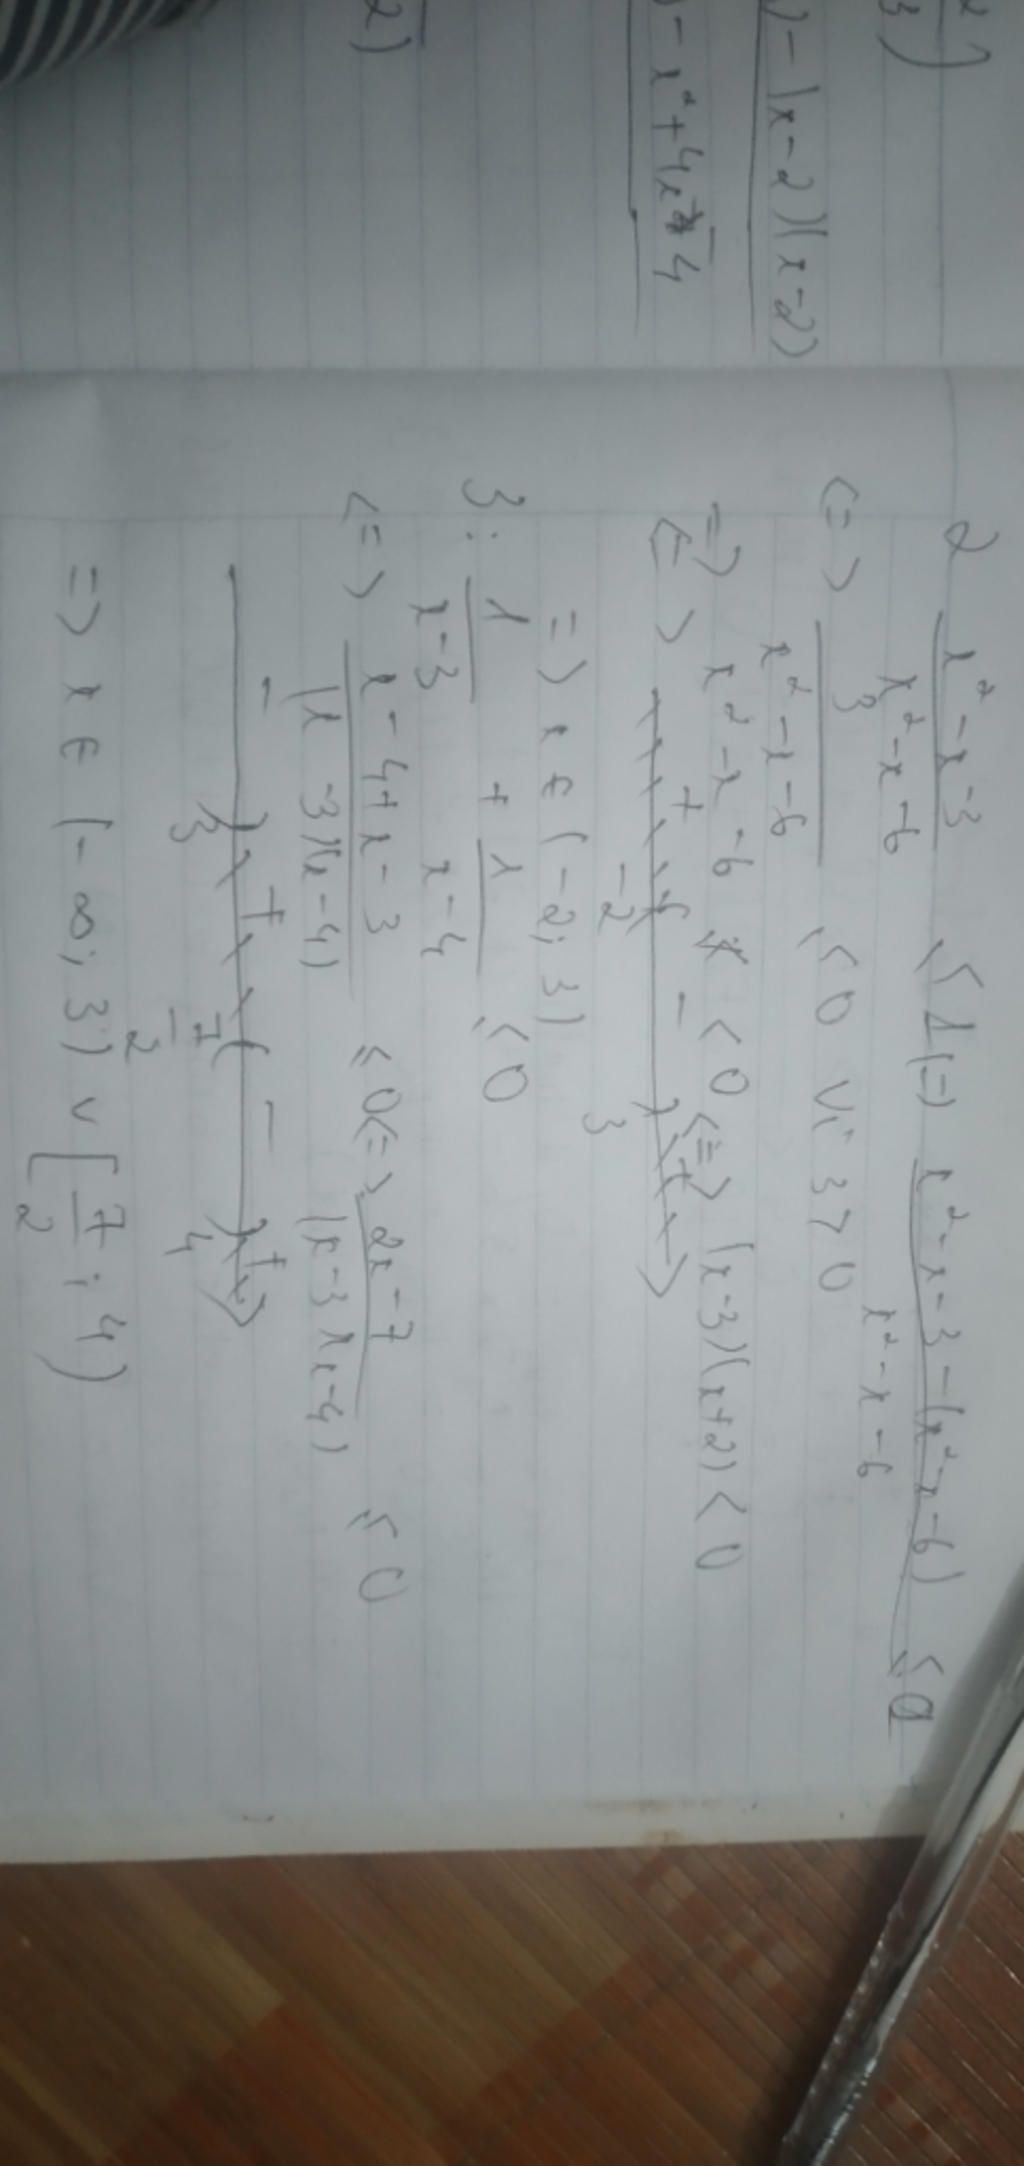 2)
3)
) - (x-2)(x-2)
) - x² + 4x - 4
2)
2 x² - x - 3 / x² - x - 6 ≤ 1 (=) x² - x - 3 - (x² - x - 6) / x² - x - 6 ≤ 0
<=> 3 / x² - x - 6 ≤ 0 Vì 3 > 0
=> x² - x - 6 < 0 <=> (x-3)(x+2) < 0
<=> + -2 - 3 +
=> x ∈ (-2; 3)
3: 1 / x-3 + 1 / x-4 ≤ 0
<=> x - 4 + x - 3 / (x-3)(x-4) ≤ 0 <=> 2x - 7 / (x-3)(x-4) ≤ 0
- 3 + 7/2 - 4 +
=> x ∈ (-∞; 3) ∪ [7/2; 4)